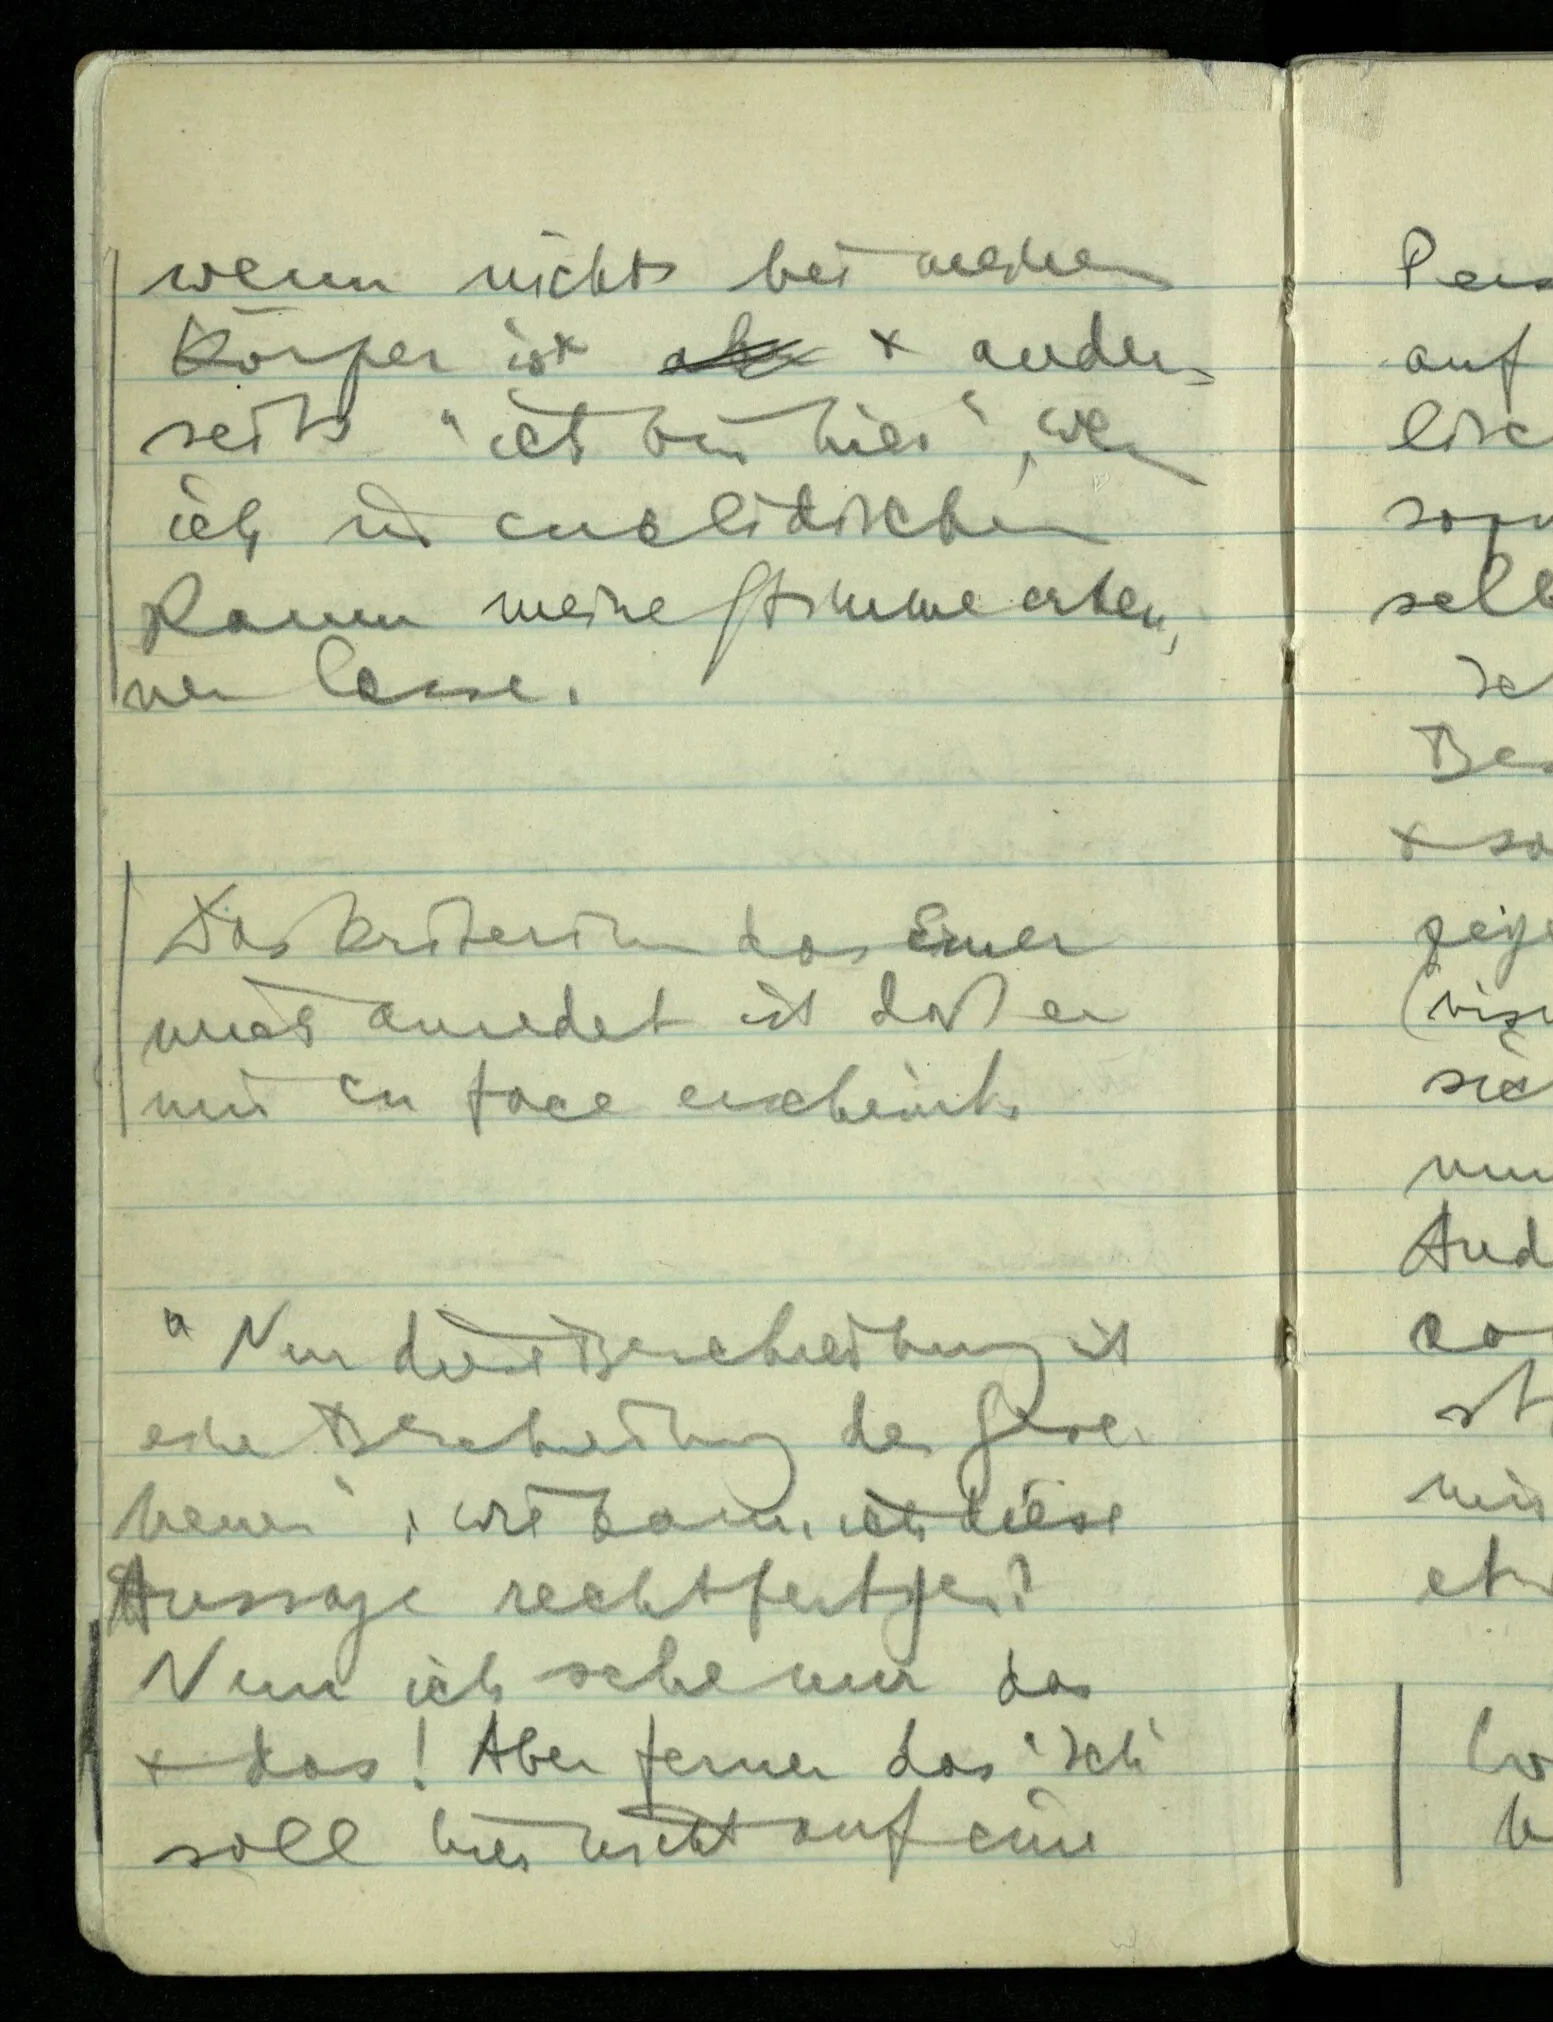 wenn nichts bei meinem
Körper ist aber + ander-
seits "ich bin hier", wenn
ich im euclidischen
Raum meine Stimme ertön,
nen lasse.
Das Kriterium das Einer
mich anredet ist daß er
mir en face erscheint.
"Nur diese Beschreibung ist
eine Beschreibung des Gege-
benen", wie kann ich diese
Aussage rechtfertigen?
Nun ich sehe nur das
+ das! Aber ferner das 'Ich'
soll hier nicht auf eine
Pers
auf
lisc
sond
selb
Ich
Bes
+ so
zeige
(visu
sich
And
co
st
mir